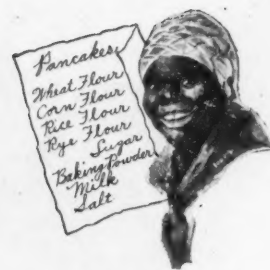 Pancakes
Wheat Flour
Corn Flour
Rice Flour
Rye Flour
Sugar
Baking Powder
Milk
Salt